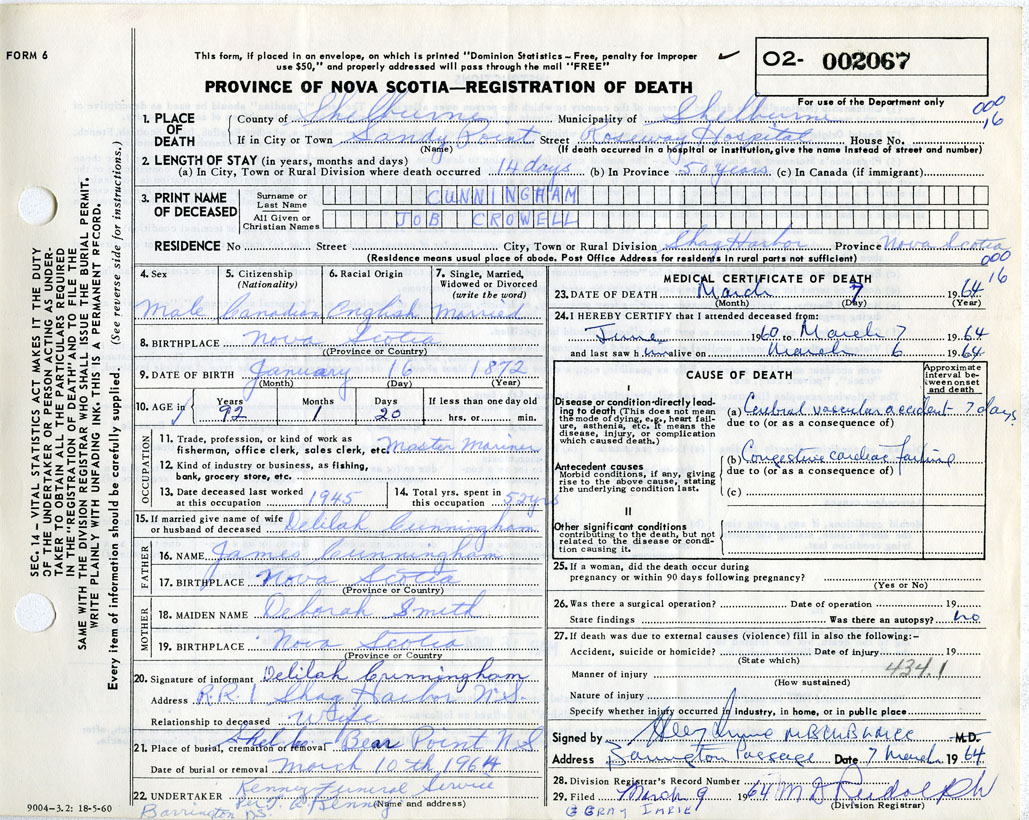 FORM 6
This form, if placed in an envelope, on which is printed "Dominion Statistics – Free, penalty for improper
use $50," and properly addressed will pass through the mail "FREE"
O2- 002067
PROVINCE OF NOVA SCOTIA—REGISTRATION OF DEATH
For use of the Department only
000
16
1. PLACE OF DEATH County of Shelburne Municipality of Shelburne
If in City or Town Sandy Point Street Roseway Hospital House No.
(Name) (If death occurred in a hospital or institution, give the name instead of street and number)
2. LENGTH OF STAY (in years, months and days)
(a) In City, Town or Rural Division where death occurred 14 days (b) In Province 50 years (c) In Canada (if immigrant)
3. PRINT NAME OF DECEASED
Surname or Last Name CUNNINGHAM
All Given or Christian Names JOB CROWELL
RESIDENCE No Street City, Town or Rural Division Shag Harbor Province Nova Scotia
(Residence means usual place of abode. Post Office Address for residents in rural parts not sufficient)
000
16
4. Sex 5. Citizenship (Nationality) 6. Racial Origin 7. Single, Married, Widowed or Divorced (write the word)
Male Canadian English Married
8. BIRTHPLACE Nova Scotia
(Province or Country)
9. DATE OF BIRTH January 16 1872
(Month) (Day) (Year)
10. AGE in Years Months Days If less than one day old
92 1 20 hrs. or min.
OCCUPATION
11. Trade, profession, or kind of work as
fisherman, office clerk, sales clerk, etc. Master Mariner
12. Kind of industry or business, as fishing,
bank, grocery store, etc.
13. Date deceased last worked at this occupation 1945 14. Total yrs. spent in this occupation 52 yrs
15. If married give name of wife
or husband of deceased Delilah Cunningham
FATHER
16. NAME James Cunningham
17. BIRTHPLACE Nova Scotia
(Province or Country)
MOTHER
18. MAIDEN NAME Deborah Smith
19. BIRTHPLACE Nova Scotia
(Province or Country
20. Signature of informant Delilah Cunningham
Address R.R.1 Shag Harbor N.S.
Relationship to deceased Wife
21. Place of burial, cremation or removal Bear Point N.S
Date of burial or removal March 10th 1964
22. UNDERTAKER Kenney Funeral Service
(Name and address)
Barrington N.S.
9004-3.2: 18-5-60
MEDICAL CERTIFICATE OF DEATH
23. DATE OF DEATH March 7 1964
(Month) (Day) (Year)
24. I HEREBY CERTIFY that I attended deceased from:
June 1960 to March 7 1964
and last saw h im alive on March 6 1964
CAUSE OF DEATH
Approximate interval between onset and death
I
Disease or condition directly leading to death (This does not mean the mode of dying, e.g., heart failure, asthenia, etc. It means the disease, injury, or complication which caused death.)
(a) Cerebral vascular accident 7 days
due to (or as a consequence of)
Antecedent causes
Morbid conditions, if any, giving rise to the above cause, stating the underlying condition last.
(b) Congestive cardiac failure
due to (or as a consequence of)
(c)
II
Other significant conditions contributing to the death, but not related to the disease or condition causing it.
25. If a woman, did the death occur during
pregnancy or within 90 days following pregnancy?
(Yes or No)
26. Was there a surgical operation? Date of operation 19
State findings Was there an autopsy? no
27. If death was due to external causes (violence) fill in also the following:–
Accident, suicide or homicide? Date of injury 19
(State which)
434.1
Manner of injury
(How sustained)
Nature of injury
Specify whether injury occurred in industry, in home, or in public place
Signed by M.D.
Address Barrington Passage Date 7 March 1964
28. Division Registrar's Record Number
29. Filed March 9 1964 M D Rudolph
(Division Registrar)
SEC. 14 – VITAL STATISTICS ACT MAKES IT THE DUTY
OF THE UNDERTAKER OR PERSON ACTING AS UNDERTAKER TO OBTAIN ALL THE PARTICULARS REQUIRED
IN THE "REGISTRATION OF DEATH" AND TO FILE THE
SAME WITH THE DIVISION REGISTRAR WHO SHALL ISSUE THE BURIAL PERMIT.
WRITE PLAINLY WITH UNFADING INK. THIS IS A PERMANENT RECORD.
Every item of information should be carefully supplied. (See reverse side for instructions.)